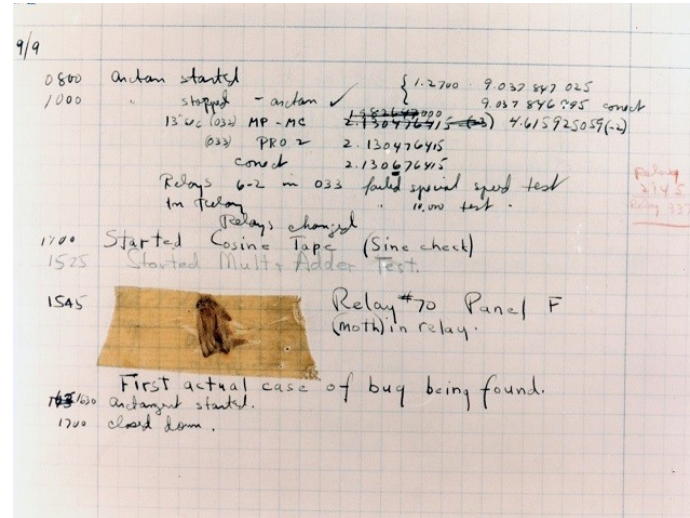 9/9
0800 arctan started { 1.2700 9.037 847 025
1000 " stopped - arctan ✓ 9.037 846 995 conect
13"uc (032) MP - MC 2.130476415 (-3) 4.615925059(-2)
(033) PRO 2 2.130476415
conect 2.130676415
Relays 6-2 in 033 failed special speed test
in relay " 10,000 test .
Relays changed
1700 Started Cosine Tape (Sine check)
1525 Started Mult+Adder Test.
1545 Relay #70 Panel F
(moth) in relay.
First actual case of bug being found.
1630 arctangent started.
1700 closed down.
Relay
2145
Relay 337